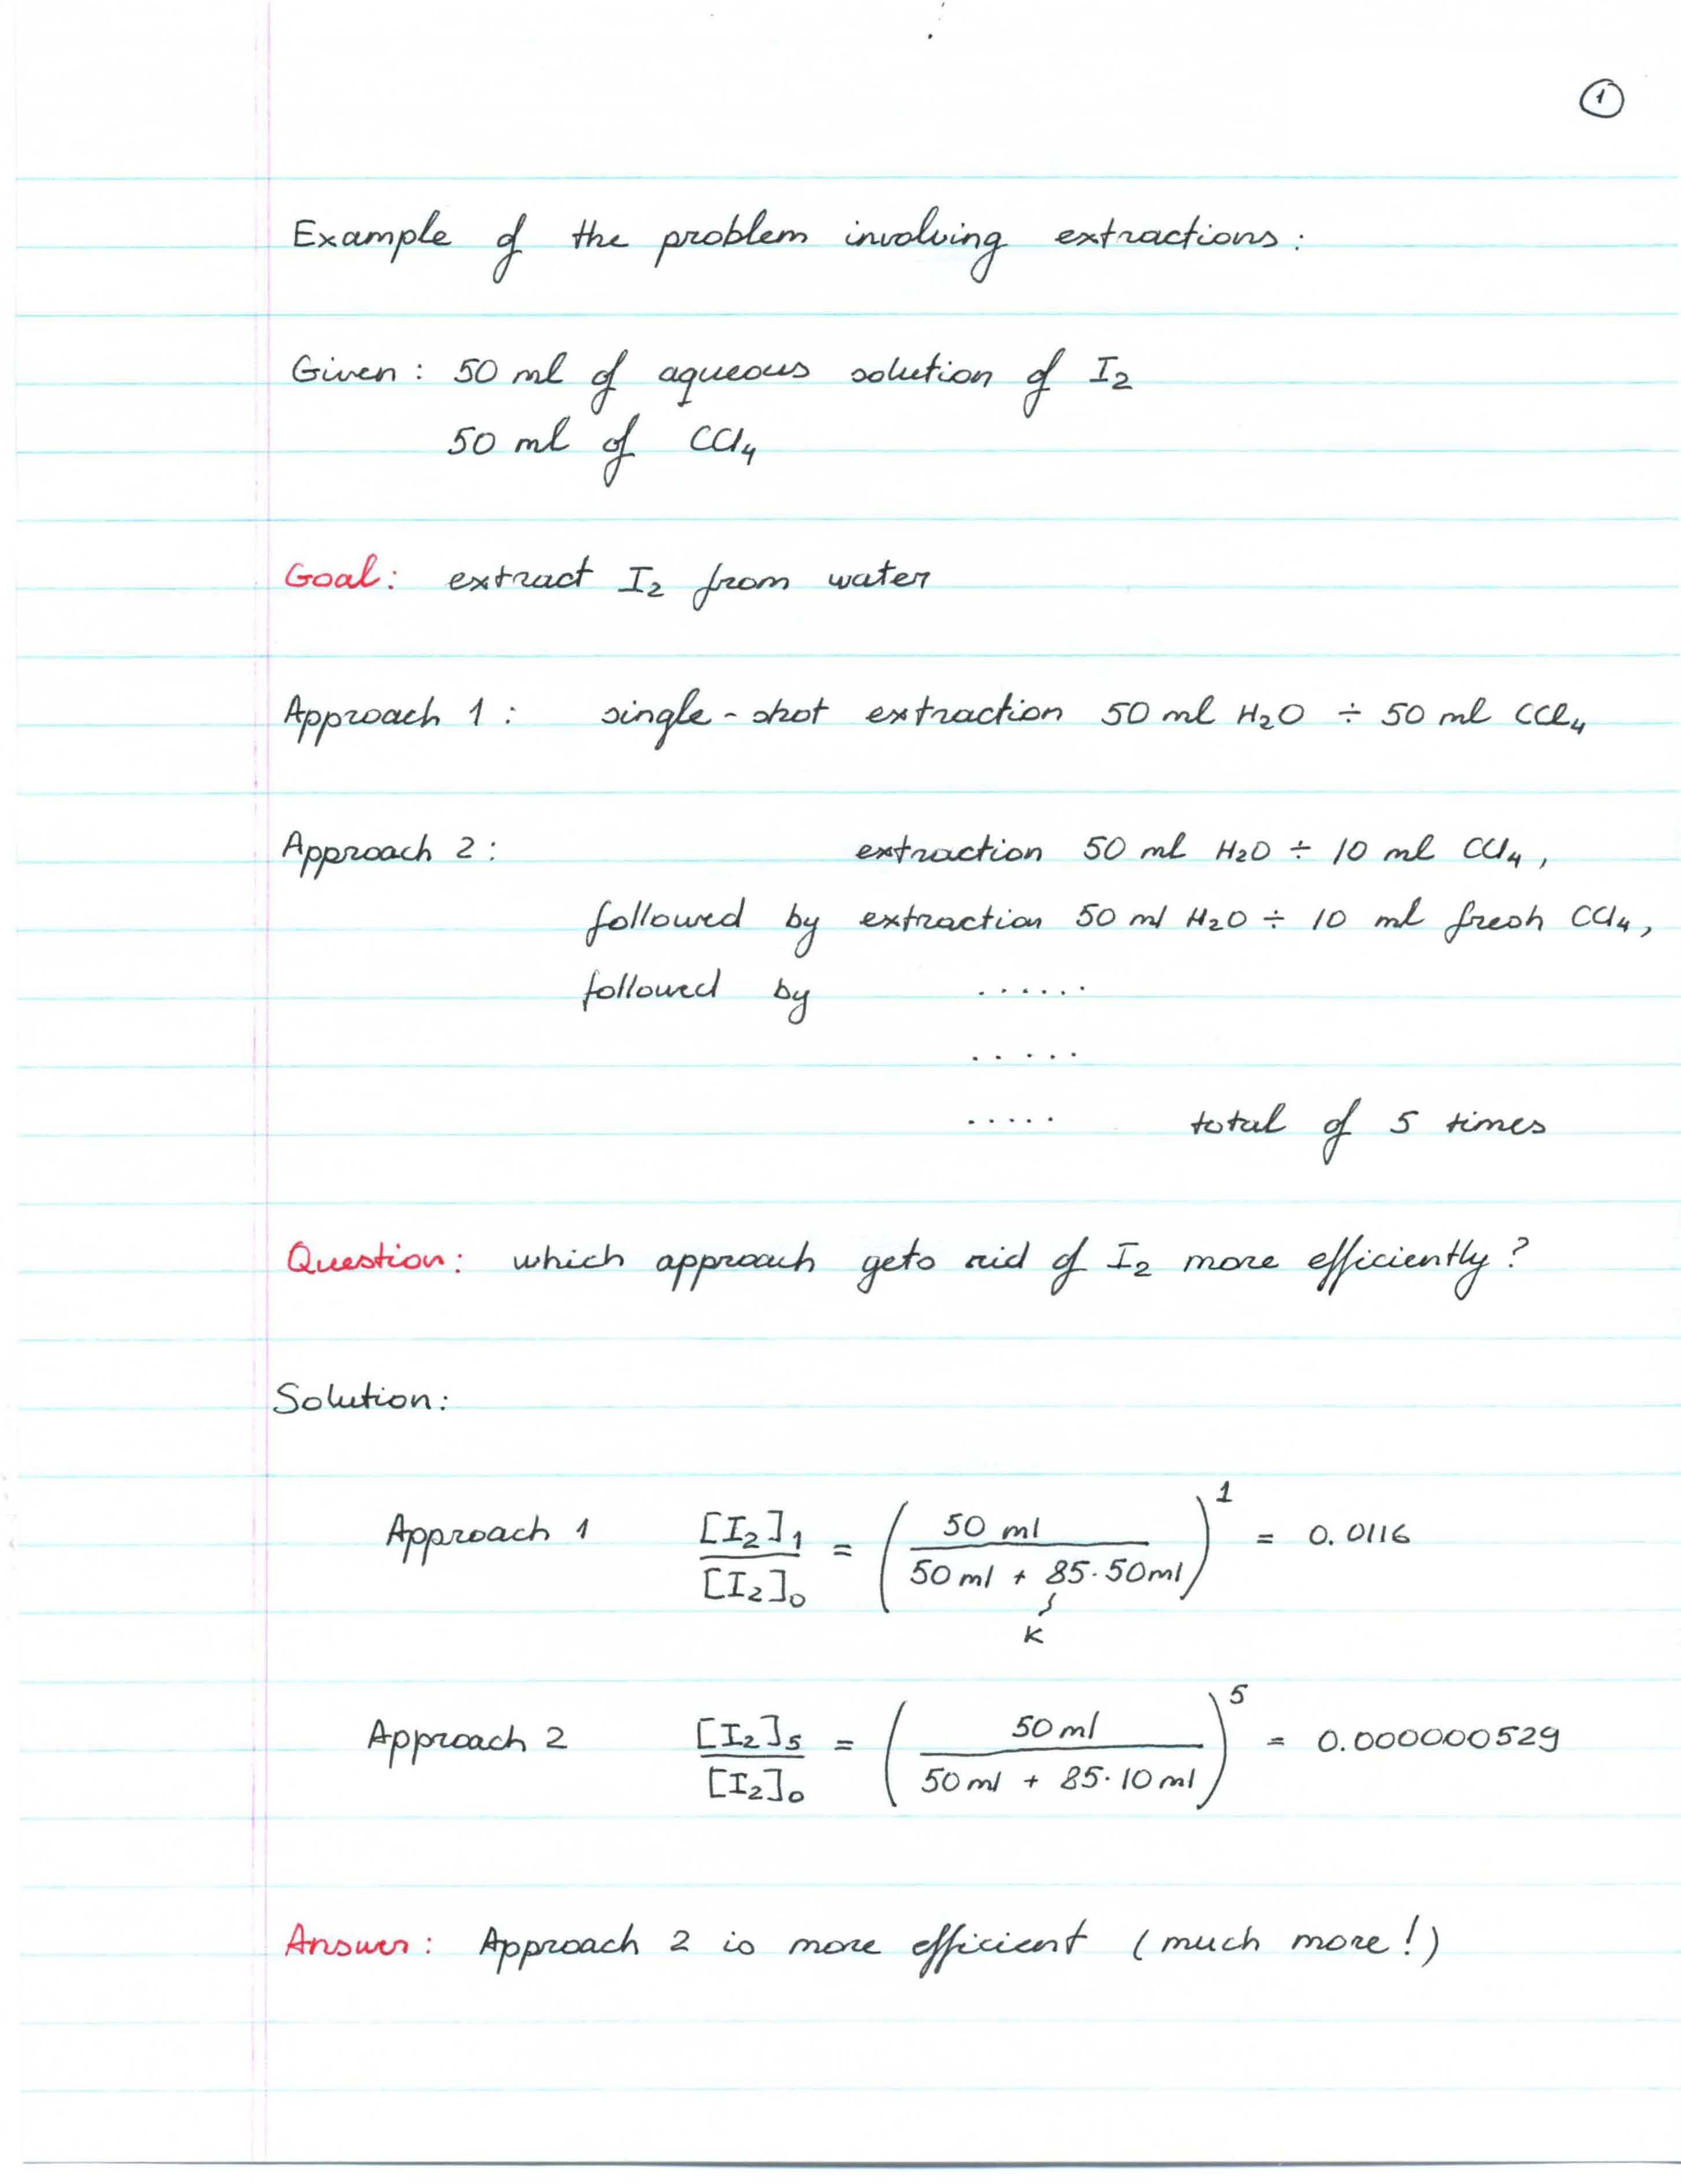 ①
Example of the problem involving extractions:
Given: 50 ml of aqueous solution of I₂
50 ml of CCl₄
Goal: extract I₂ from water
Approach 1: single-shot extraction 50 ml H₂O ÷ 50 ml CCl₄
Approach 2: extraction 50 ml H₂O ÷ 10 ml CCl₄,
followed by extraction 50 ml H₂O ÷ 10 ml fresh CCl₄,
followed by ......
.....
..... total of 5 times
Question: which approach gets rid of I₂ more efficiently?
Solution:
Approach 1 [I₂]₁ / [I₂]₀ = (50 ml / (50 ml + 85·50 ml))¹ = 0.0116
K
Approach 2 [I₂]₅ / [I₂]₀ = (50 ml / (50 ml + 85·10 ml))⁵ = 0.000000529
Answer: Approach 2 is more efficient (much more!)